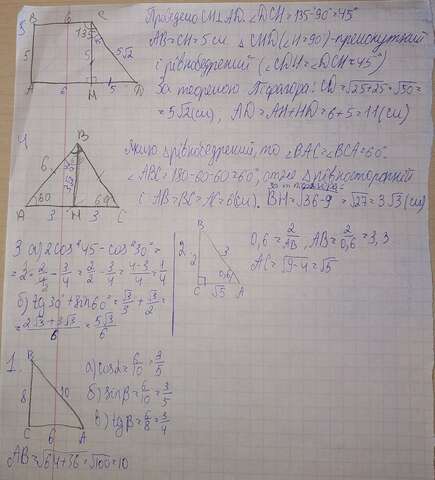 5
B 6 C
135°
5 5 5√2
A 6 H 5 D
Проведено CH⊥AD. ∠DCH=135-90°=45°
AB=CH=5 см. △CHD(∠H=90°)-прямокутний
і рівнобедрений (∠CDH=∠DCH=45°)
За теоремою Піфагора: CD=√25+25=√50=
=5√2(см), AD=AH+HD=6+5=11(см)
4
B
6
A 60 H 60 C
3 3
Якщо △рівнобедрений, то ∠BAC=∠BCA=60°
∠ABC=180-60-60=60°, отже △рівносторонній
і AB=BC=AC=6(см). BH=√36-9=√27=3√3(см)
3. а) 2cos²45-cos²30°=
=2·2/4-3/4=2/2-3/4=4-3/4=1/4
б) tg30°+sin60°=√3/3+√3/2=
=2√3+3√3/6=5√3/6
2.
B
2 3
0,6
C √5 A
0,6=2/AB, AB=2/0,6=3,3
AC=√9-4=√5
1.
B
8 10
C 6 A
а) cosα=6/10=3/5
б) sinβ=6/10=3/5
в) tgβ=6/8=3/4
AB=√64+36=√100=10